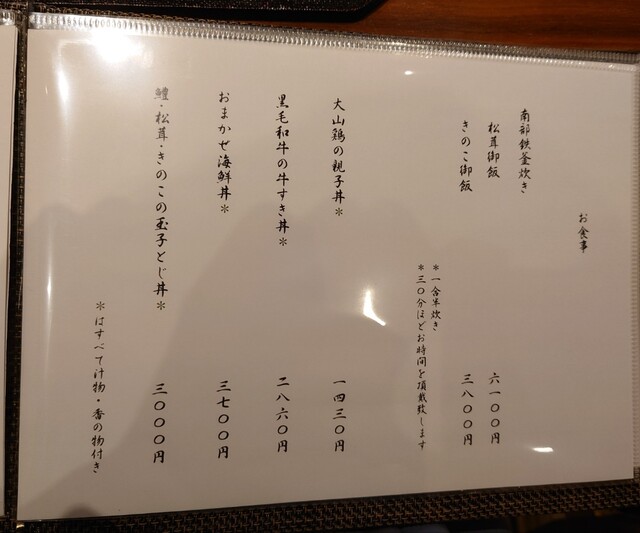 お食事
南部鉄釜炊き
松茸御飯 六一〇〇円
きのこ御飯 三八〇〇円
*一合半炊き
*三〇分ほどお時間を頂戴致します
大山鶏の親子丼* 一四三〇円
黒毛和牛の牛すき丼* 二八六〇円
おまかせ海鮮丼* 三七〇〇円
鱧・松茸・きのこの玉子とじ丼* 三〇〇〇円
*はすべて汁物・香の物付き